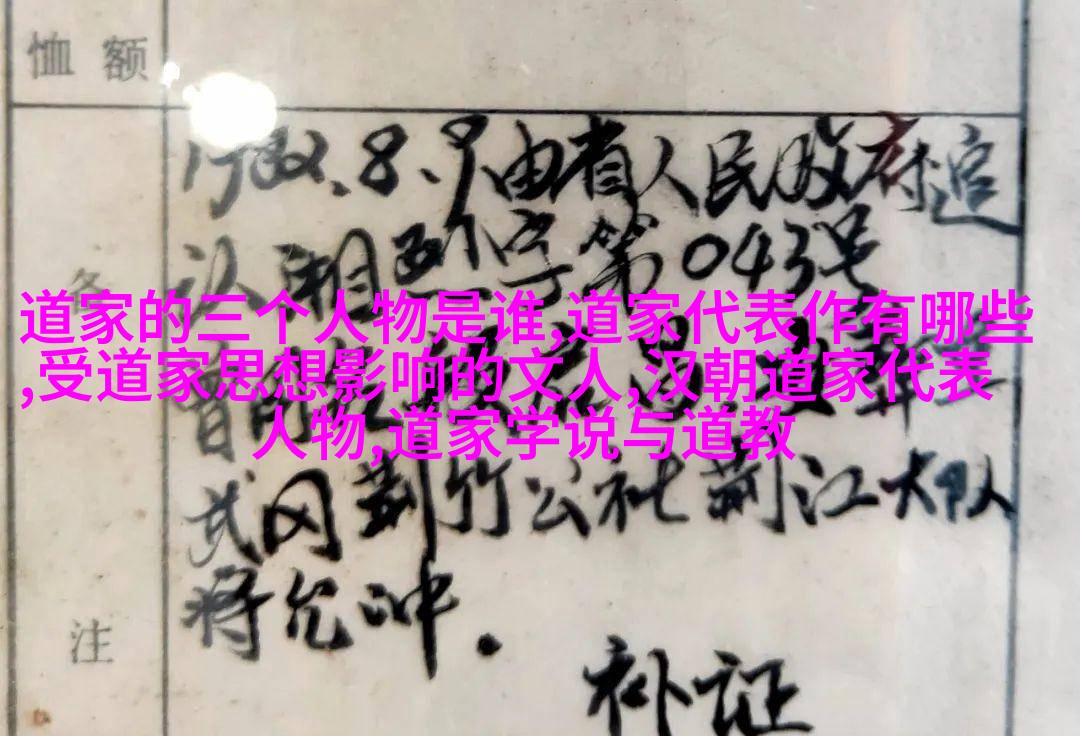 恤额
1982.8.9由省人民政府追
认湘烈字第043号
备
道家的三个人物是谁,道家代表作有哪些
,受道家思想影响的文人,汉朝道家代表
人物,道家学说与道教
武冈荆竹公社荆江大队
蒋允冲.
注
补证